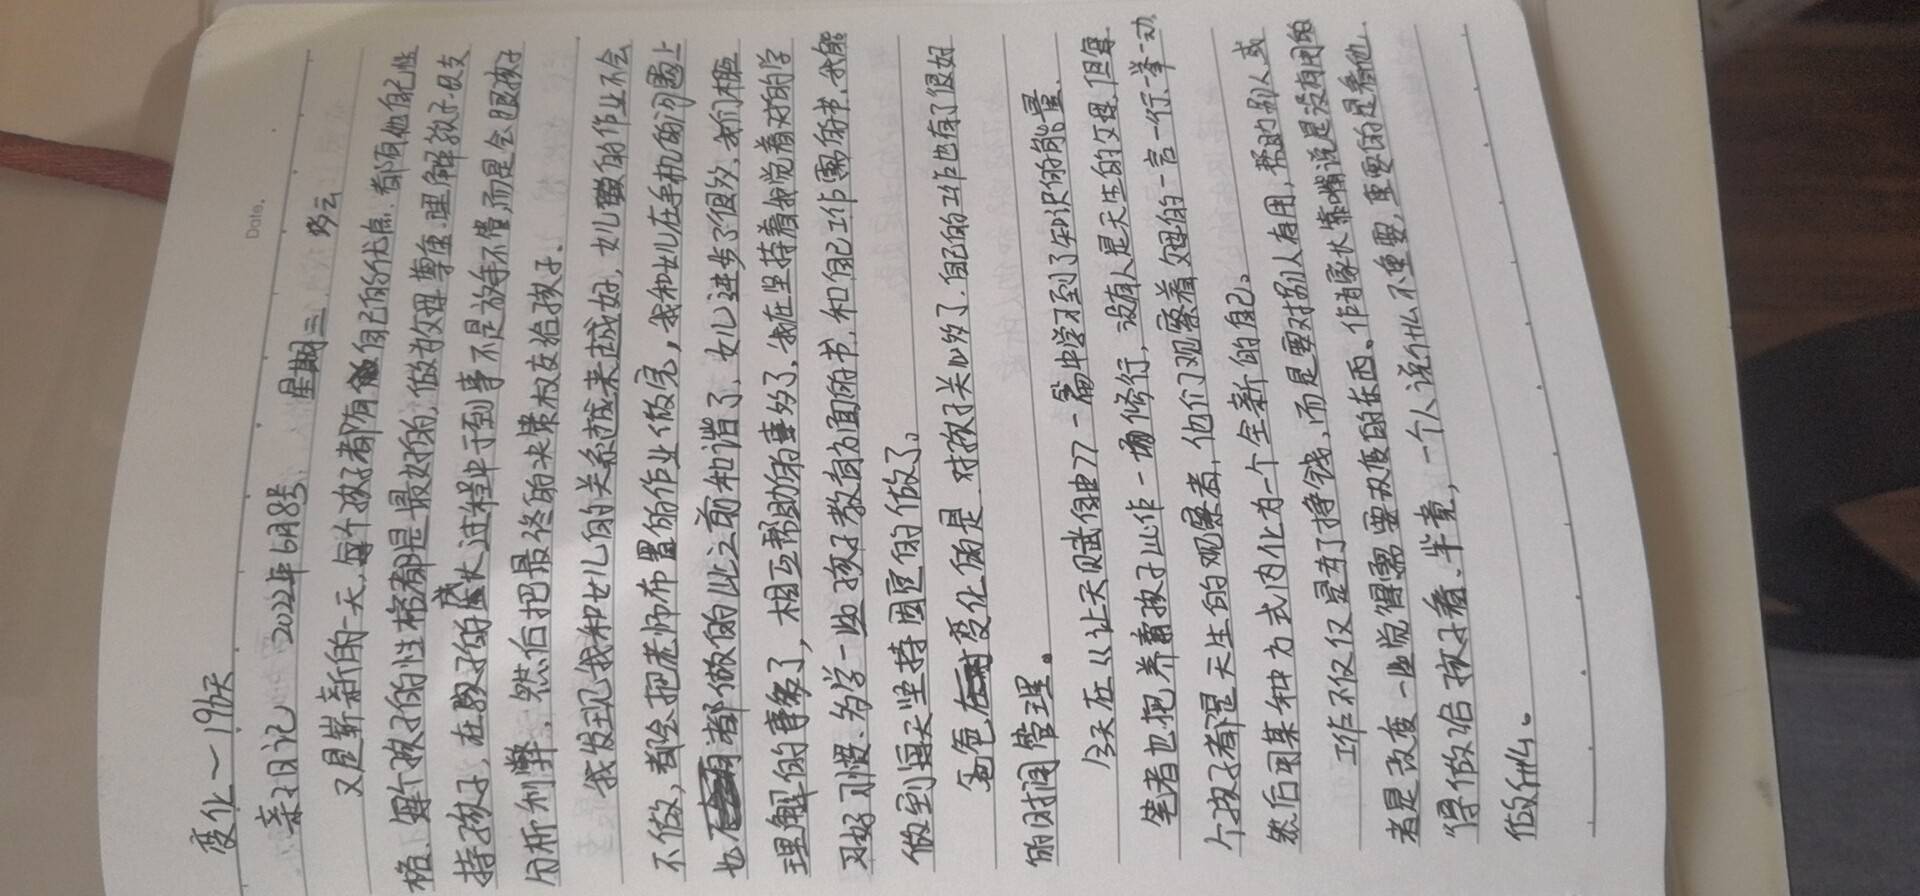 变化一196天
Date.
亲子日记 2022年6月8号 星期三 多云
又是崭新的一天,每个孩子都有自己的优点,都有他自己性
格、每个孩子的性格都是最好的,做为父母尊重.理解孩子.只支
持孩子,在孩子的成长过程中于到事不是放手不管,而是会跟孩子
分析利弊,然后把最终的决策权交给孩子.
我发现我和女儿的关系越来越好,女儿数的作业不会
不做,都会把老师布置的作业做完,我和女儿在手机的问题上
也都做的比之前和谐了,女儿进步了很多,我们相
理解的事多了,相互帮助的事多了,我在坚持着我觉着对的学
习好习惯、为学一些孩子教育方面的书,和自己工作需的书,我能
做到每天坚持固定的做了。
角色在变化的是.对孩子关心多了.自己的工作也有了很好
的时间管理。
今天在《让天赋自由77一篇中学习到了知识的能量
笔者也把养育孩子比作一场修行,没有人是天生的父母,但每
个孩子都是天生的观察者,他们观察着父母的一言一行、一举一动
然后用某种方式内化为一个全新的自己。
工作不仅仅是为了挣钱,而是要对别人有用,帮助别人或
者是改变一些觉得需要改变的东西、作为家长靠嘴说是没有用的
得做给孩子看、毕竟,一个人说什么不重要,重要的是看他
做什么。